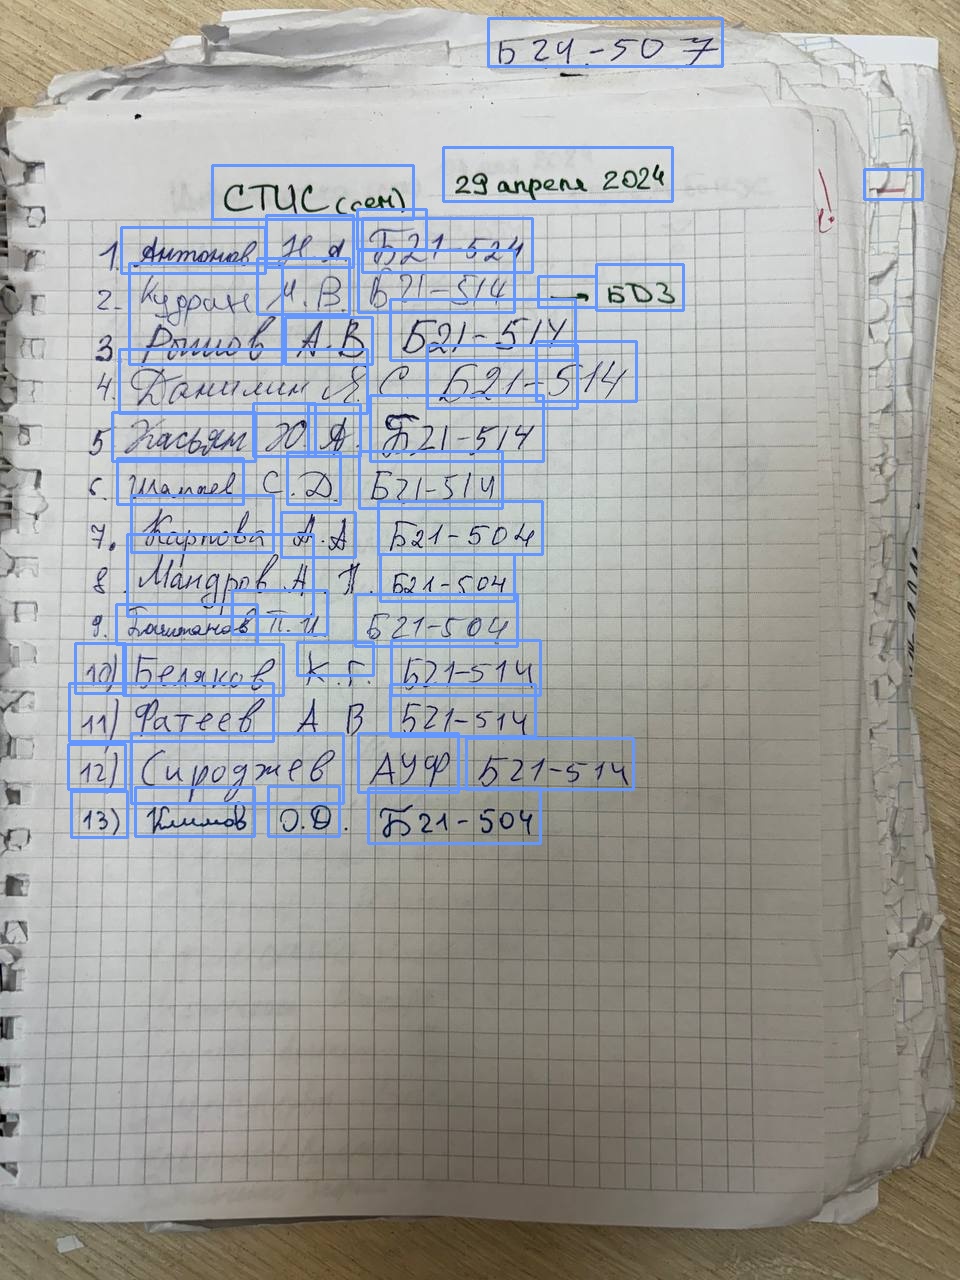 Б24-507
СТЦС (сем) 29 апреля 2024
1. Антонов Н А Б21-524
2. Кудран И.В. Б21-514 → БДЗ
3 Рыжов А.В Б21-514
4. Данилин Я. С Б21-514
5 Касьян Ю А. Б21-514
6. С.Д. Б21-514
7. Карпова А.А Б21-504
8. Мандров А. П. Б21-504
9. Башманов П.И Б21-504
10) Беляков К.Г. Б21-514
11) Фатеев А В Б21-514
12) Сироджев АУФ Б21-514
13) Климов О.Д. Б21-504